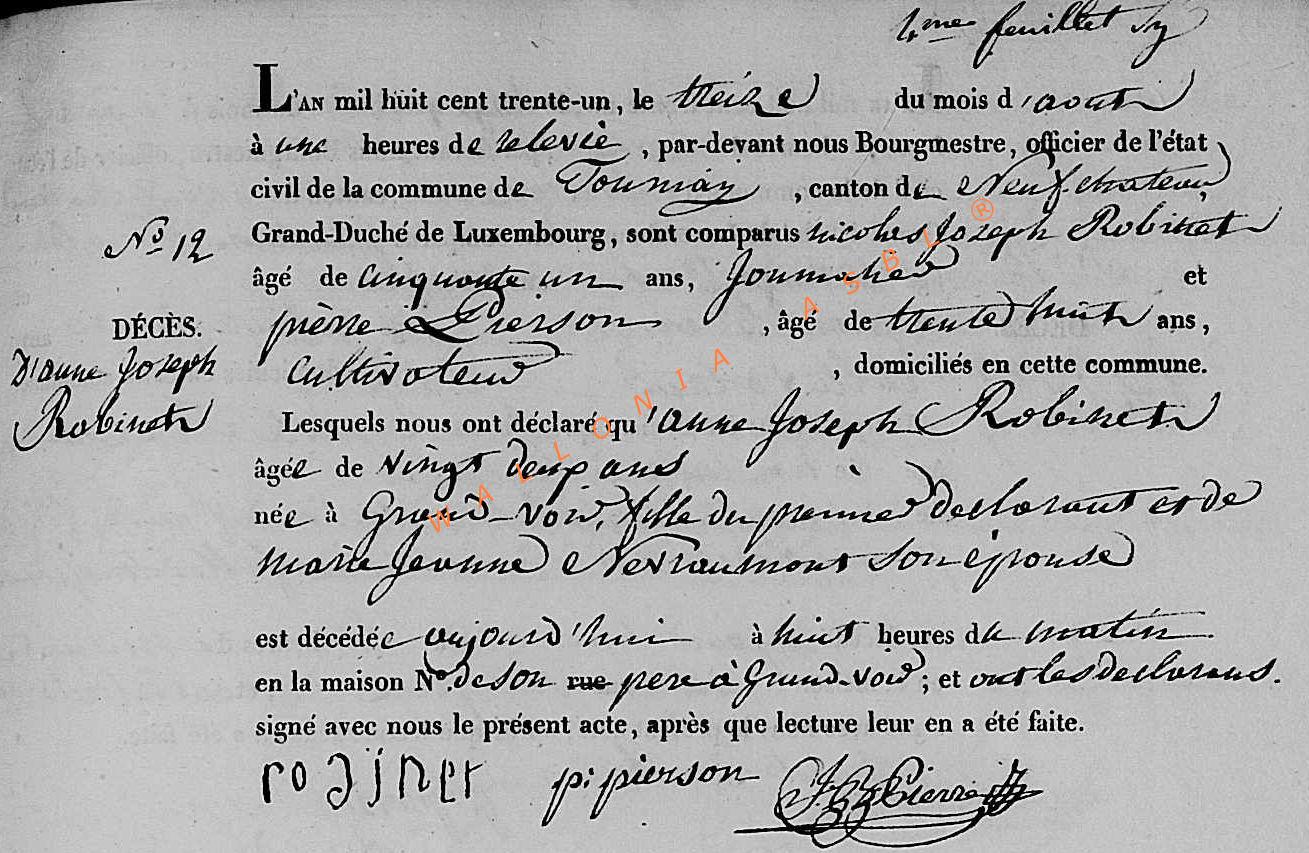 4me feuillet
L'AN mil huit cent trente-un, le treize du mois d'aout
à une heures de relevée, par-devant nous Bourgmestre, officier de l'état
civil de la commune de Tournay, canton de Neufchateau
Grand-Duché de Luxembourg, sont comparus nicolas Joseph Robinet
N° 12
âgé de cinquante un ans, Journalier et
pierre Pierson, âgé de trente huit ans,
DÉCÈS.
D'anne Joseph
Robinet
cultivateur, domiciliés en cette commune.
Lesquels nous ont déclaré qu'anne Joseph Robinet
âgée de vingt deux ans
née à Grand-voir, fille du premier declarant et de
marie Jeanne Nevraumont son épouse
est décédée aujourd'hui à huit heures du matin
en la maison N°. de son rue pere à Grand-voir; et ont les declarans.
signé avec nous le présent acte, après que lecture leur en a été faite.
robinet p: pierson J B Pierre
WALLONIA ASBL ®